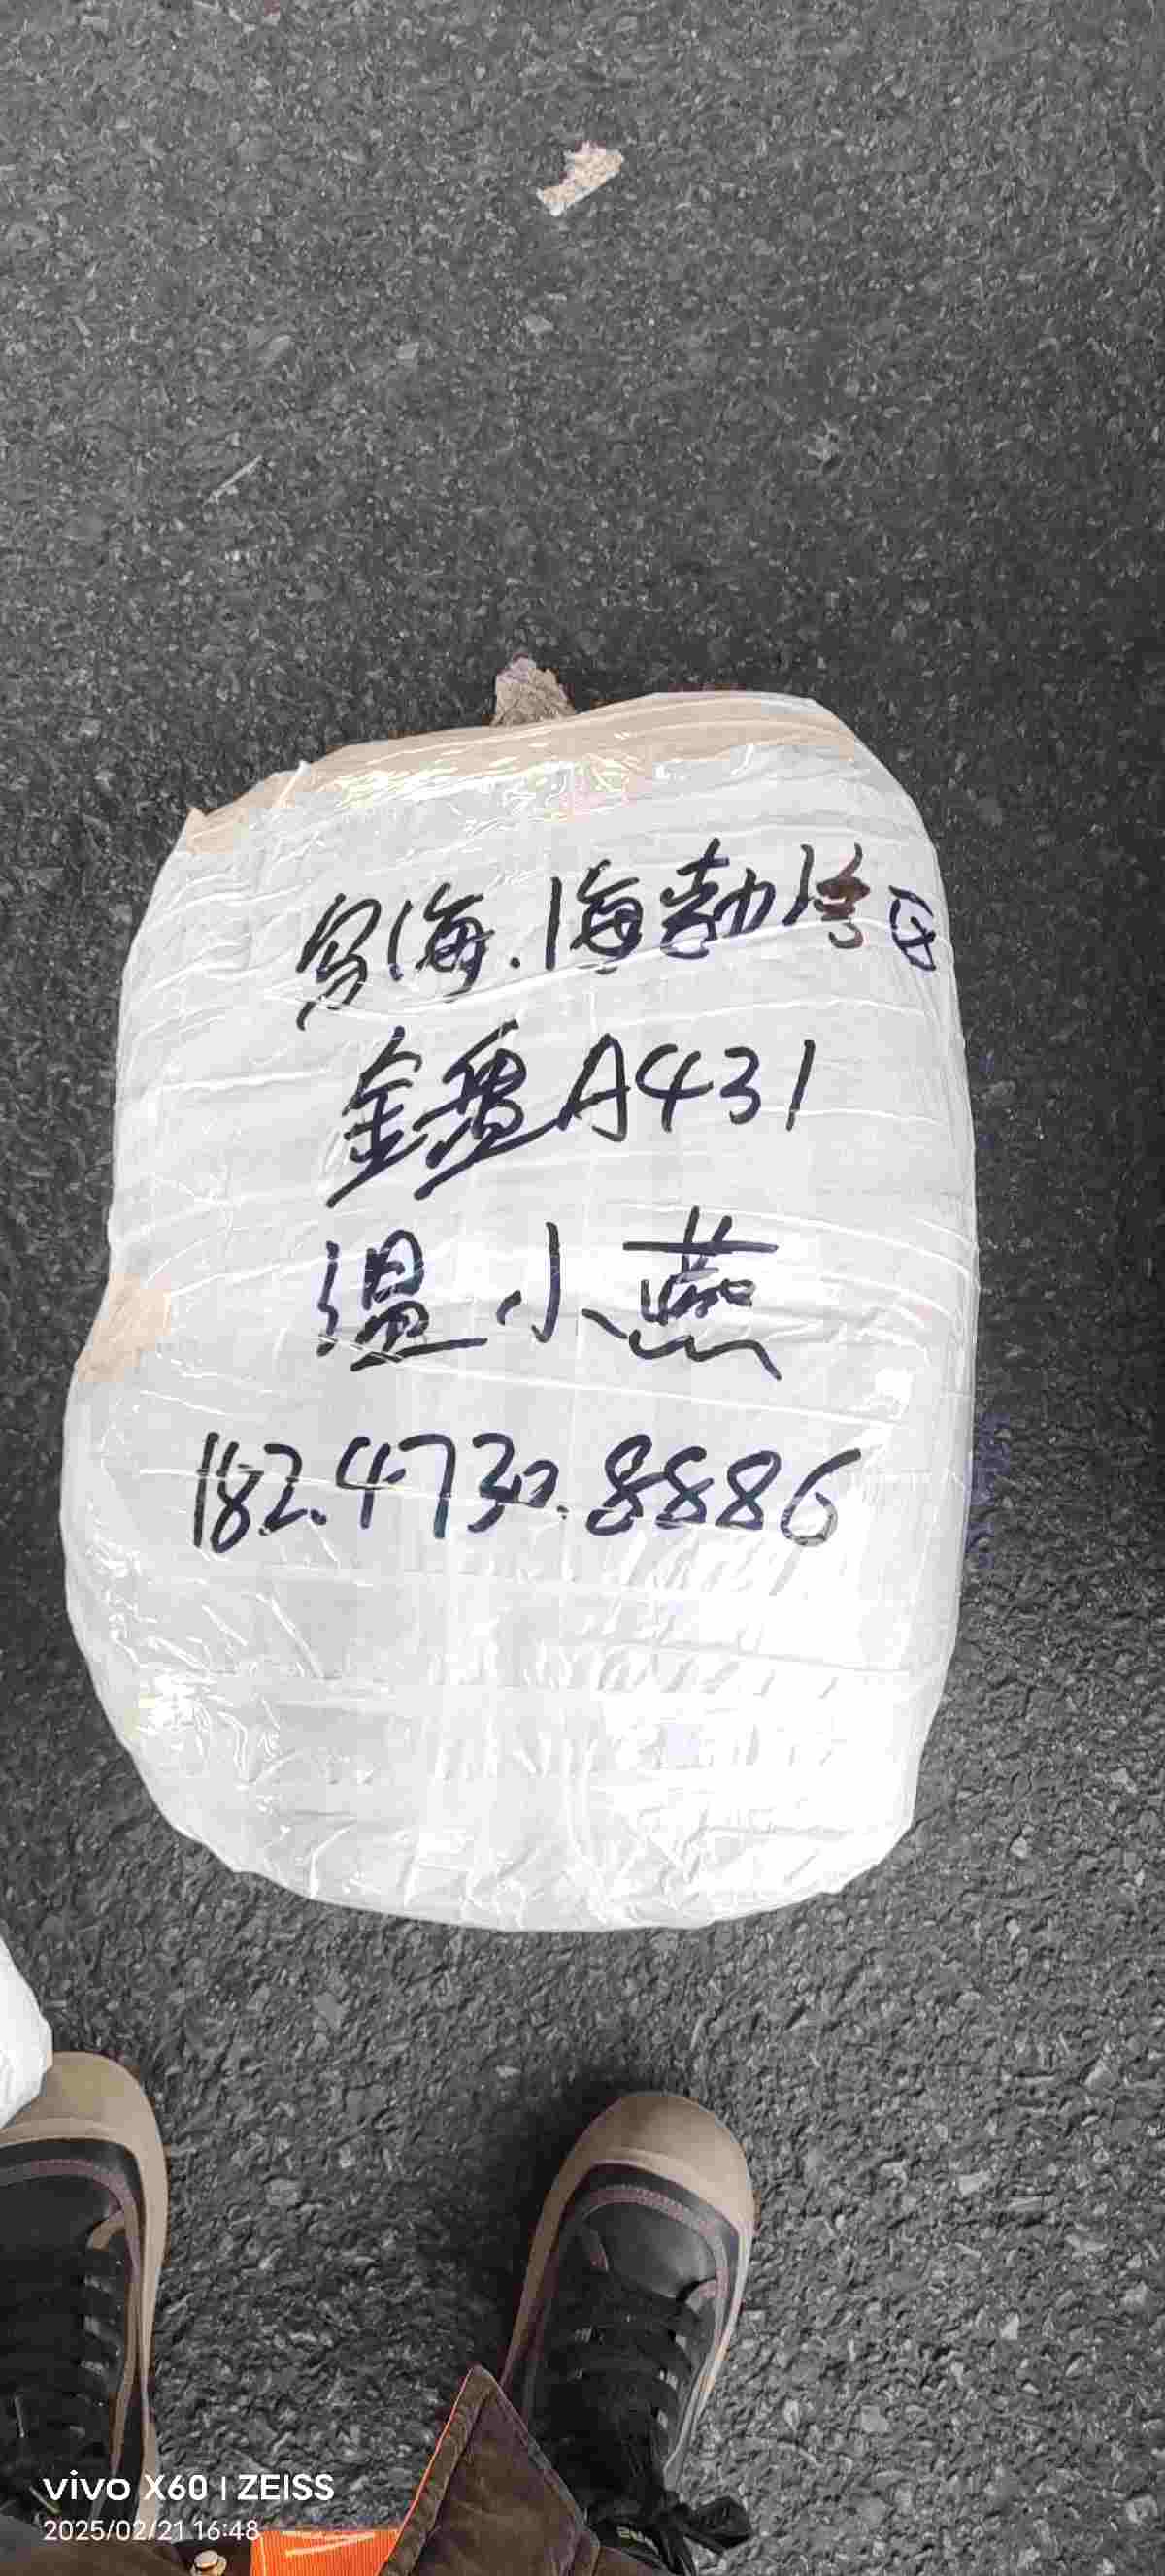 乌海.海勃湾区
金盘A431
温小燕
182.4730.8886
vivo X60 | ZEISS
2025/02/21 16:48